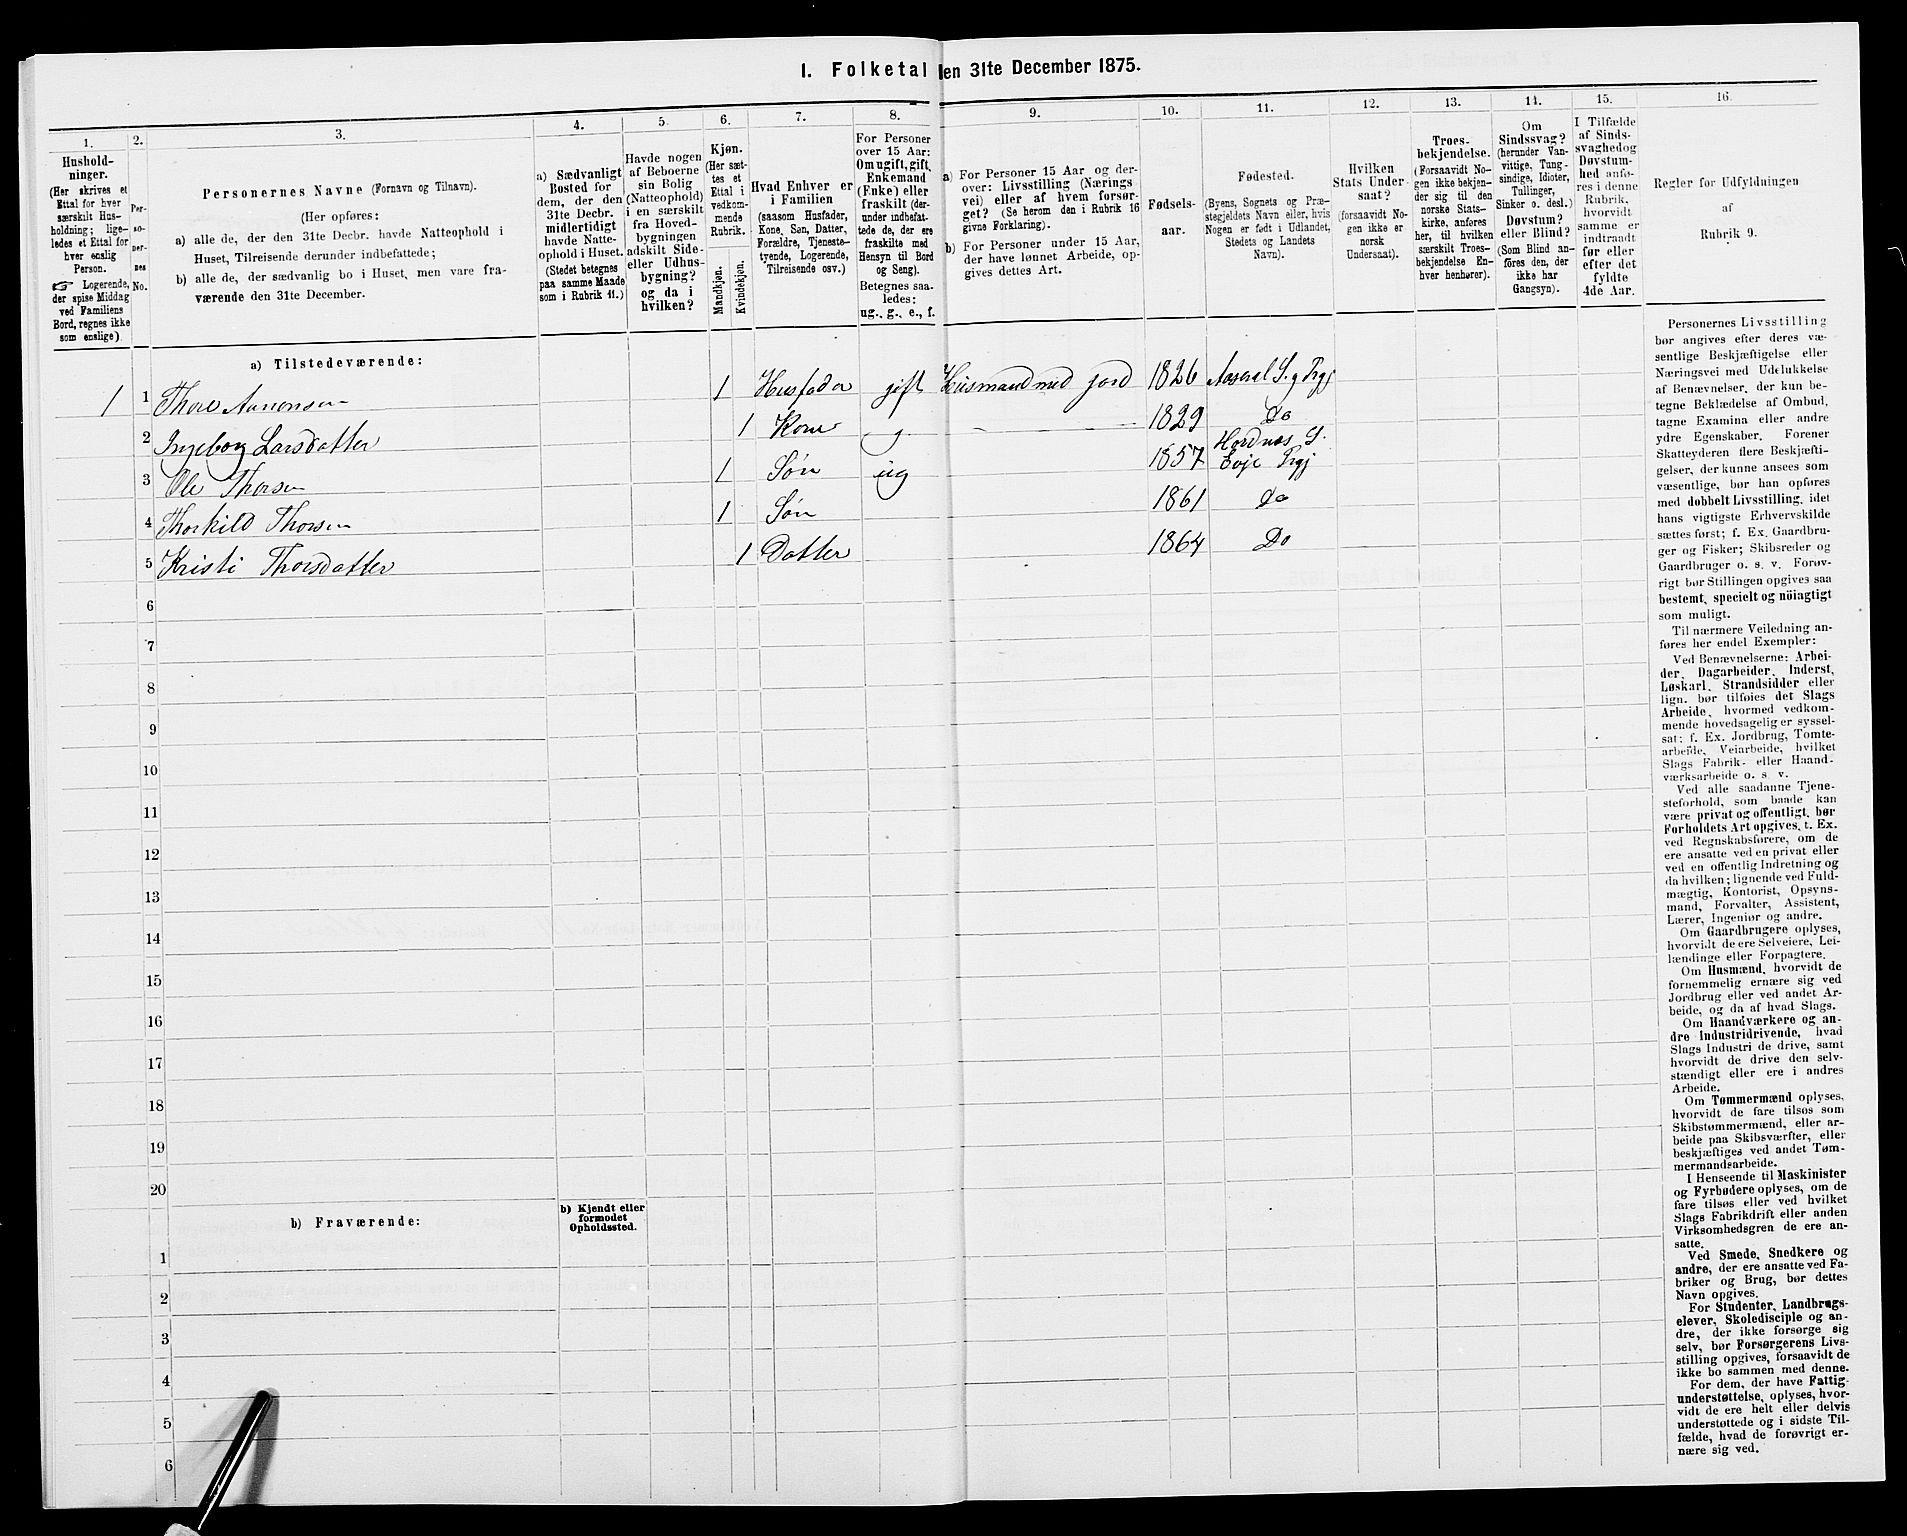 I. Folketal den 31te December 1875.
1.
2.
3.
4.
5.
6.
7.
8.
9.
10.
11.
12.
13.
14.
15.
16.
Hushold-
ninger.
(Her skrives et
Ettal for hver
særskilt Hus-
holdning; lige-
ledes et Ettal for
hver enslig
Person.
☞ Logerende,
der spise Middag
ved Familiens
Bord, regnes ikke
som enslige).
Per-
so-
ner-
nes
No.
Personernes Navne (Fornavn og Tilnavn).
(Her opføres:
a) alle de, der den 31te Decbr. havde Natteophold i
Huset, Tilreisende derunder indbefattede;
b) alle de, der sædvanlig bo i Huset, men vare fra-
værende den 31te December.
a) Sædvanligt
Bosted for
dem, der den
31te Decbr.
midlertidigt
havde Natte-
ophold i Huset.
(Stedet betegnes
paa samme Maade
som i Rubrik 11.)
Havde nogen
af Beboerne
sin Bolig
(Natteophold)
i en særskilt
fra Hoved-
bygningen
adskilt Side-
eller Udhus-
bygning?
og da i
hvilken?
Kjøn.
(Her sæt-
tes et
Ettal i
vedkom-
mende
Rubrik.
Mandkjøn.
Kvindekjøn.
Hvad Enhver er
i Familien
(saasom Husfader,
Kone, Søn, Datter,
Forældre, Tjeneste-
tyende, Logerende,
Tilreisende osv.)
For Personer
over 15 Aar:
Om ugift, gift,
Enkemand
(Enke) eller
fraskilt (der-
under indbefat-
tede de, der ere
fraskilte med
Hensyn til Bord
og Seng).
Betegnes saa-
ledes:
ug., g., e., f.
a) For Personer 15 Aar og der-
over: Livsstilling (Nærings
vei) eller af hvem forsør-
get? (Se herom den i Rubrik 16
givne Forklaring).
b) For Personer under 15 Aar,
der have lønnet Arbeide, op-
gives dettes Art.
Fødsels-
aar.
Fødested.
(Byens, Sognets og Præ-
stegjeldets Navn eller, hvis
Nogen er født i Udlandet,
Stedets og Landets
Navn).
Hvilken
Stats Under-
saat?
(forsaavidt No-
gen ikke er
norsk
Undersaat).
Troes-
bekjendelse.
(Forsaavidt No-
gen ikke bekjen-
der sig til den
norske Stats-
kirke, anføres
her, til hvilken
særskilt Troes-
bekjendelse En-
hver henhører).
Om
Sindssvag?
(herunder Van-
vittige, Tung-
sindige, Idioter,
Tullinger,
Sinker o. desl.)
Døvstum?
eller Blind?
(Som Blind an-
føres den, der
ikke har
Gangsyn).
I Tilfælde
af Sinds-
svaghed og
Døvstum-
hed anfø-
res i denne
Rubrik,
hvorvidt
samme er
indtraadt
før eller
efter det
fyldte
4de Aar.
Regler for Udfyldningen
af
Rubrik 9.
a) Tilstedeværende:
1 1 Thore Aanonsen 1 Husfader gift Husmand med jord 1826 Aaseral S. og Prgj
2 Ingeborg Larsdatter 1 Kone g 1829 Do
3 Ole Thorsen 1 Søn ug 1857 Hordnæs S. Evje Prgj
4 Thorkild Thorsen 1 Søn 1861 Do
5 Kristi Thorsdatter 1 Datter 1864 Do
6
7
8
9
10
11
12
13
14
15
16
17
18
19
20
b) Fraværende:
b) Kjendt eller
formodet
Opholdssted.
1
2
3
4
5
6
Personernes Livsstilling
bør angives efter deres væ-
sentlige Beskjæftigelse eller
Næringsvei med Udelukkelse
af Benævnelser, der kun be-
tegne Beklædelse af Ombud,
tagne Examina eller andre
ydre Egenskaber. Forener
Skatteyderen flere Beskjæfti-
gelser, der kunne ansees som
væsentlige, bør han opføres
med dobbelt Livsstilling, idet
hans vigtigste Erhvervskilde
sættes først; f. Ex. Gaardbru-
ger og Fisker; Skibsreder og
Gaardbruger o. s. v. Forøv-
rigt bør Stillingen opgives saa
bestemt, specielt og nöiagtigt
som muligt.
Til nærmere Veiledning an-
føres her endel Exempler:
Ved Benævnelserne: Arbei-
der, Dagarbeider, Inderst,
Løskarl, Strandsidder eller
lign. bør tilføies det Slags
Arbeide, hvormed vedkom-
mende hovedsagelig er syssel-
sat; f. Ex. Jordbrug, Tomte-
arbeide, Veiarbeide, hvilket
Slags Fabrik- eller Haand-
værksarbeide o. s. v.
Ved alle saadanne Tjene-
steforhold, som baade kan
være privat og offentligt, bør
Forholdets Art opgives, t. Ex.
ved Regnskabsførere, om de
ere ansatte ved en privat eller
ved en offentlig Indretning og
da hvilken; lignende ved Fuld-
mægtig, Kontorist, Opsyns-
mand, Forvalter, Assistent,
Lærer, Ingeniør og andre.
Om Gaardbrugere oplyses,
hvorvidt de ere Selveiere, Lei-
lændinge eller Forpagtere.
Om Husmænd, hvorvidt de
fornemmelig ernære sig ved
Jordbrug eller ved andet Ar-
beide, og da af hvad Slags.
Om Haandværkere og an-
dre Industridrivende, hvad
Slags Industri de drive, samt
hvorvidt de drive den selv-
stændigt eller ere i andres
Arbeide.
Om Tømmermænd oplyses,
hvorvidt de fare tilsøs som
Skibstømmermænd, eller ar-
beide paa Skibsværfter, eller
beskjæftiges ved andet Tøm-
mermandsarbeide.
I Henseende til Maskinister
og Fyrbødere oplyses, om de
fare tilsøs eller ved hvilket
Slags Fabrikdrift eller anden
Virksomhedsgren de ere an-
satte.
Ved Smede, Snedkere og
andre, der ere ansatte ved Fa-
briker og Brug, bør dettes
Navn opgives.
For Studenter, Landbrugs-
elever, Skoledisciple og an-
dre, der ikke forsørge sig
selv, bør Forsørgerens Livs-
stilling opgives, forsaavidt de
ikke bo sammen med denne.
For dem, der have Fattig-
understøttelse, oplyses, hvor-
vidt de ere helt eller delvis
understøttede og i sidste Til-
fælde, hvad de forøvrigt er-
nære sig ved.